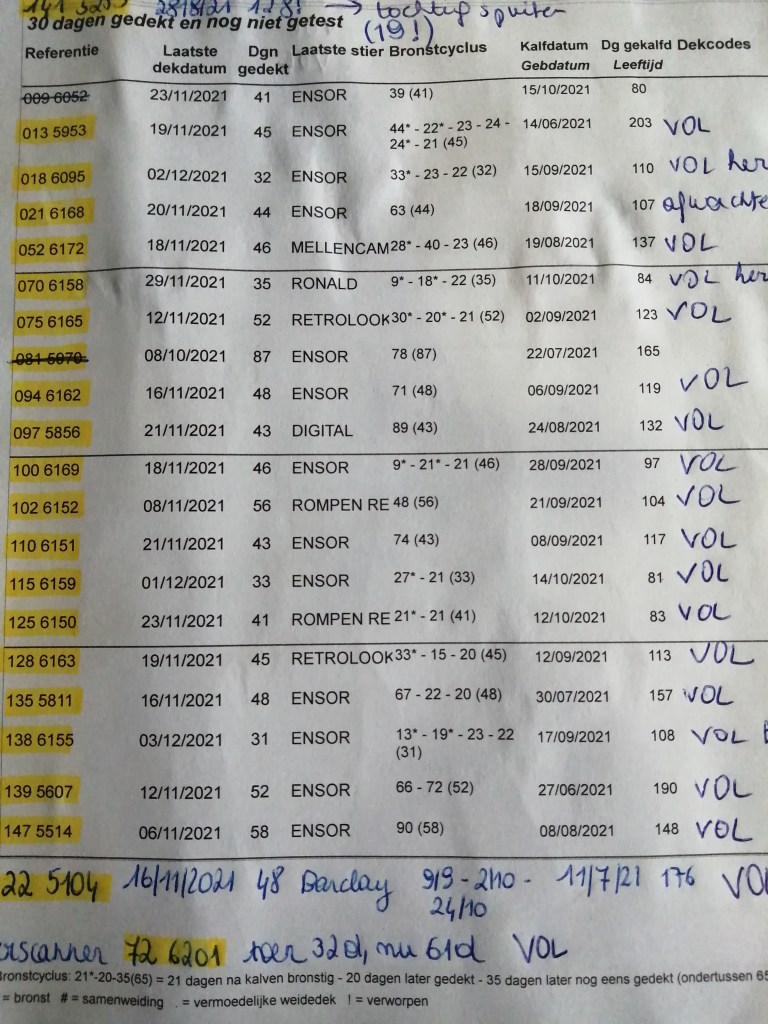 28/8/21 128!
→ tochtig spuiten
30 dagen gedekt en nog niet getest
(19!)
Referentie Laatste dekdatum Dgn gedekt Laatste stier Bronstcyclus Kalfdatum Gebdatum Dg gekalfd Leeftijd Dekcodes
009 6052 23/11/2021 41 ENSOR 39 (41) 15/10/2021 80
013 5953 19/11/2021 45 ENSOR 44* - 22* - 23 - 24 - 14/06/2021 203 VOL
24* - 21 (45)
018 6095 02/12/2021 32 ENSOR 33* - 23 - 22 (32) 15/09/2021 110 VOL her
021 6168 20/11/2021 44 ENSOR 63 (44) 18/09/2021 107 afwachte
052 6172 18/11/2021 46 MELLENCAM 28* - 40 - 23 (46) 19/08/2021 137 VOL
070 6158 29/11/2021 35 RONALD 9* - 18* - 22 (35) 11/10/2021 84 VOL her
075 6165 12/11/2021 52 RETROLOOK 30* - 20* - 21 (52) 02/09/2021 123 VOL
081 5970 08/10/2021 87 ENSOR 78 (87) 22/07/2021 165
094 6162 16/11/2021 48 ENSOR 71 (48) 06/09/2021 119 VOL
097 5856 21/11/2021 43 DIGITAL 89 (43) 24/08/2021 132 VOL
100 6169 18/11/2021 46 ENSOR 9* - 21* - 21 (46) 28/09/2021 97 VOL
102 6152 08/11/2021 56 ROMPEN RE 48 (56) 21/09/2021 104 VOL
110 6151 21/11/2021 43 ENSOR 74 (43) 08/09/2021 117 VOL
115 6159 01/12/2021 33 ENSOR 27* - 21 (33) 14/10/2021 81 VOL
125 6150 23/11/2021 41 ROMPEN RE 21* - 21 (41) 12/10/2021 83 VOL
128 6163 19/11/2021 45 RETROLOOK 33* - 15 - 20 (45) 12/09/2021 113 VOL
135 5811 16/11/2021 48 ENSOR 67 - 22 - 20 (48) 30/07/2021 157 VOL
138 6155 03/12/2021 31 ENSOR 13* - 19* - 23 - 22 17/09/2021 108 VOL
(31)
139 5607 12/11/2021 52 ENSOR 66 - 72 (52) 27/06/2021 190 VOL
147 5514 06/11/2021 58 ENSOR 90 (58) 08/08/2021 148 VOL
22 5104 16/11/2021 48 Barclay 9/9 - 2/10 - 11/7/21 176 VOL
24/10
scanner 72 6201 toen 32d, nu 61d VOL
Bronstcyclus: 21*-20-35(65) = 21 dagen na kalven bronstig - 20 dagen later gedekt - 35 dagen later nog eens gedekt (ondertussen 65
= bronst # = samenweiding . = vermoedelijke weidedek ! = verworpen